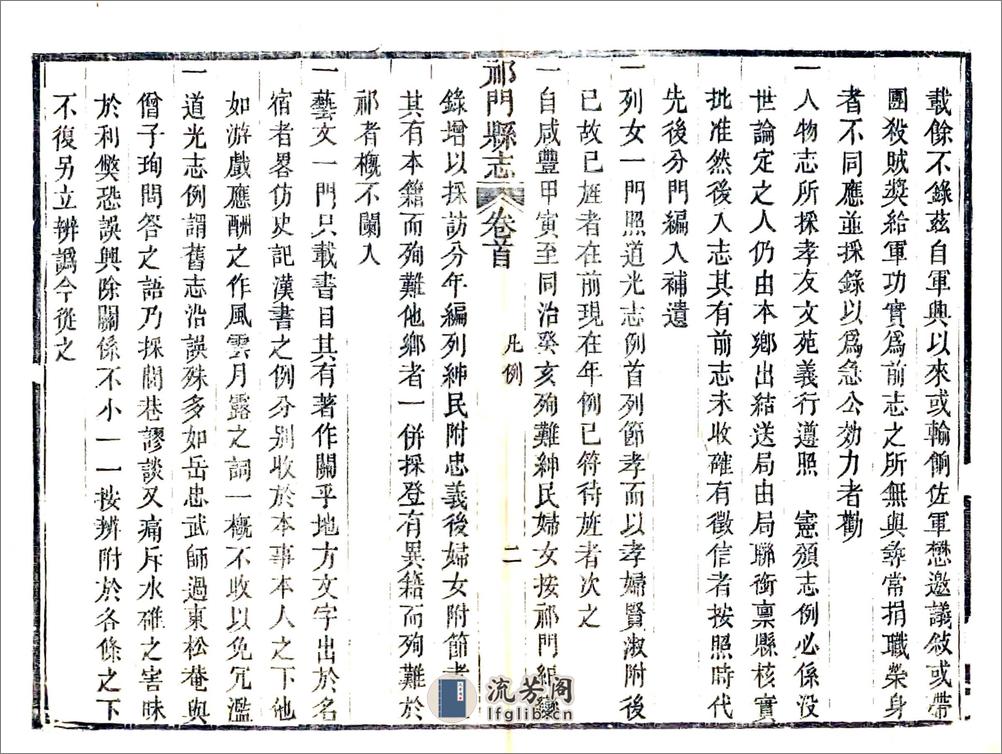 載餘不錄茲自軍興以來或輸餉佐軍懋邀議敍或帶
團殺賊奬給軍功實爲前志之所無與尋常捐職榮身
者不同應並採錄以爲急公効力者勸
一人物志所採孝友文苑義行遵照　憲頒志例必係沒
世論定之人仍由本鄉出結送局由局聯銜稟縣核實
批准然後入志其有前志未收確有徵信者按照時代
先後分門編入補遺
一列女一門照道光志例首列節孝而以孝婦賢淑附後
已故已旌者在前現在年例已符待旌者次之
一自咸豐甲寅至同治癸亥殉難紳民婦女按祁門紀變
錄增以採訪分年編列紳民附忠義後婦女附節孝
其有本籍而殉難他鄉者一併採登有異籍而殉難於
祁者概不闌入
一藝文一門只載書目其有著作關乎地方文字出於名
宿者畧仿史記漢書之例分別收於本事本人之下他
如游戲應酬之作風雲月露之詞一概不收以免冗濫
一道光志例謂舊志沿誤殊多如岳忠武師過東松菴與
僧子珣問答之語乃採閭巷謬談又痛斥水碓之害昧
於利獘恐誤興除關係不小一一按辨附於各條之下
不復另立辨譌今從之
祁門縣志
卷首
凡例
二
流芳阁
lfglib.cn